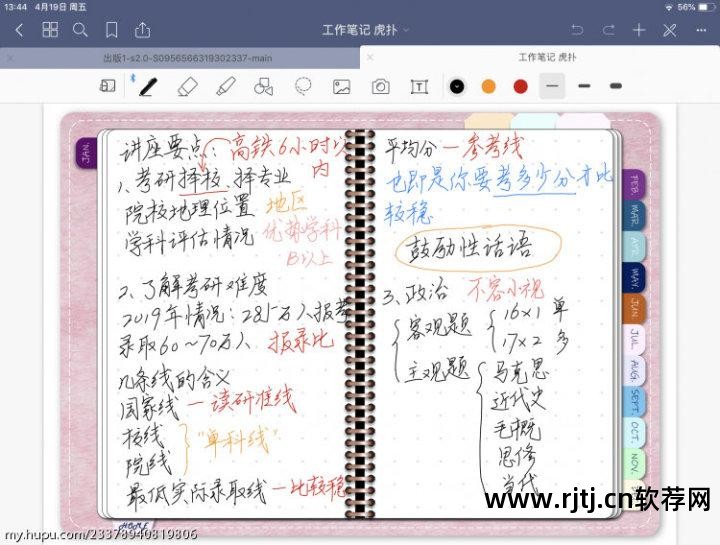 13:44 4月19日 周五
56%
工作笔记 虎扑
出版1-s2.0-S0956566319302337-main
工作笔记 虎扑
JAN.
讲座要点：高铁6小时以内
1、考研择校 择专业
院校地理位置 地区
学科评估情况 优势学科
B以上
2、了解考研难度
2019年情况：285万人报考
录取60~70万人、报录比
几条线的含义
国家线 — 读研准线
校线
院线
"单科线"
最低实际录取线 — 比较稳
HOME
平均分 — 参考线
也即是你要考多少分才比
较稳
鼓励性话语
3、政治 不容小视
客观题
16×1 单
17×2 多
主观题
马克思
近代史
毛概
思修
当代
FEB.
MAR.
APR.
MAY.
JUN.
JUL.
AUG.
SEPT.
OCT.
NOV.
www.rjtj.cn软荐网
my.hupu.com/23378940819806